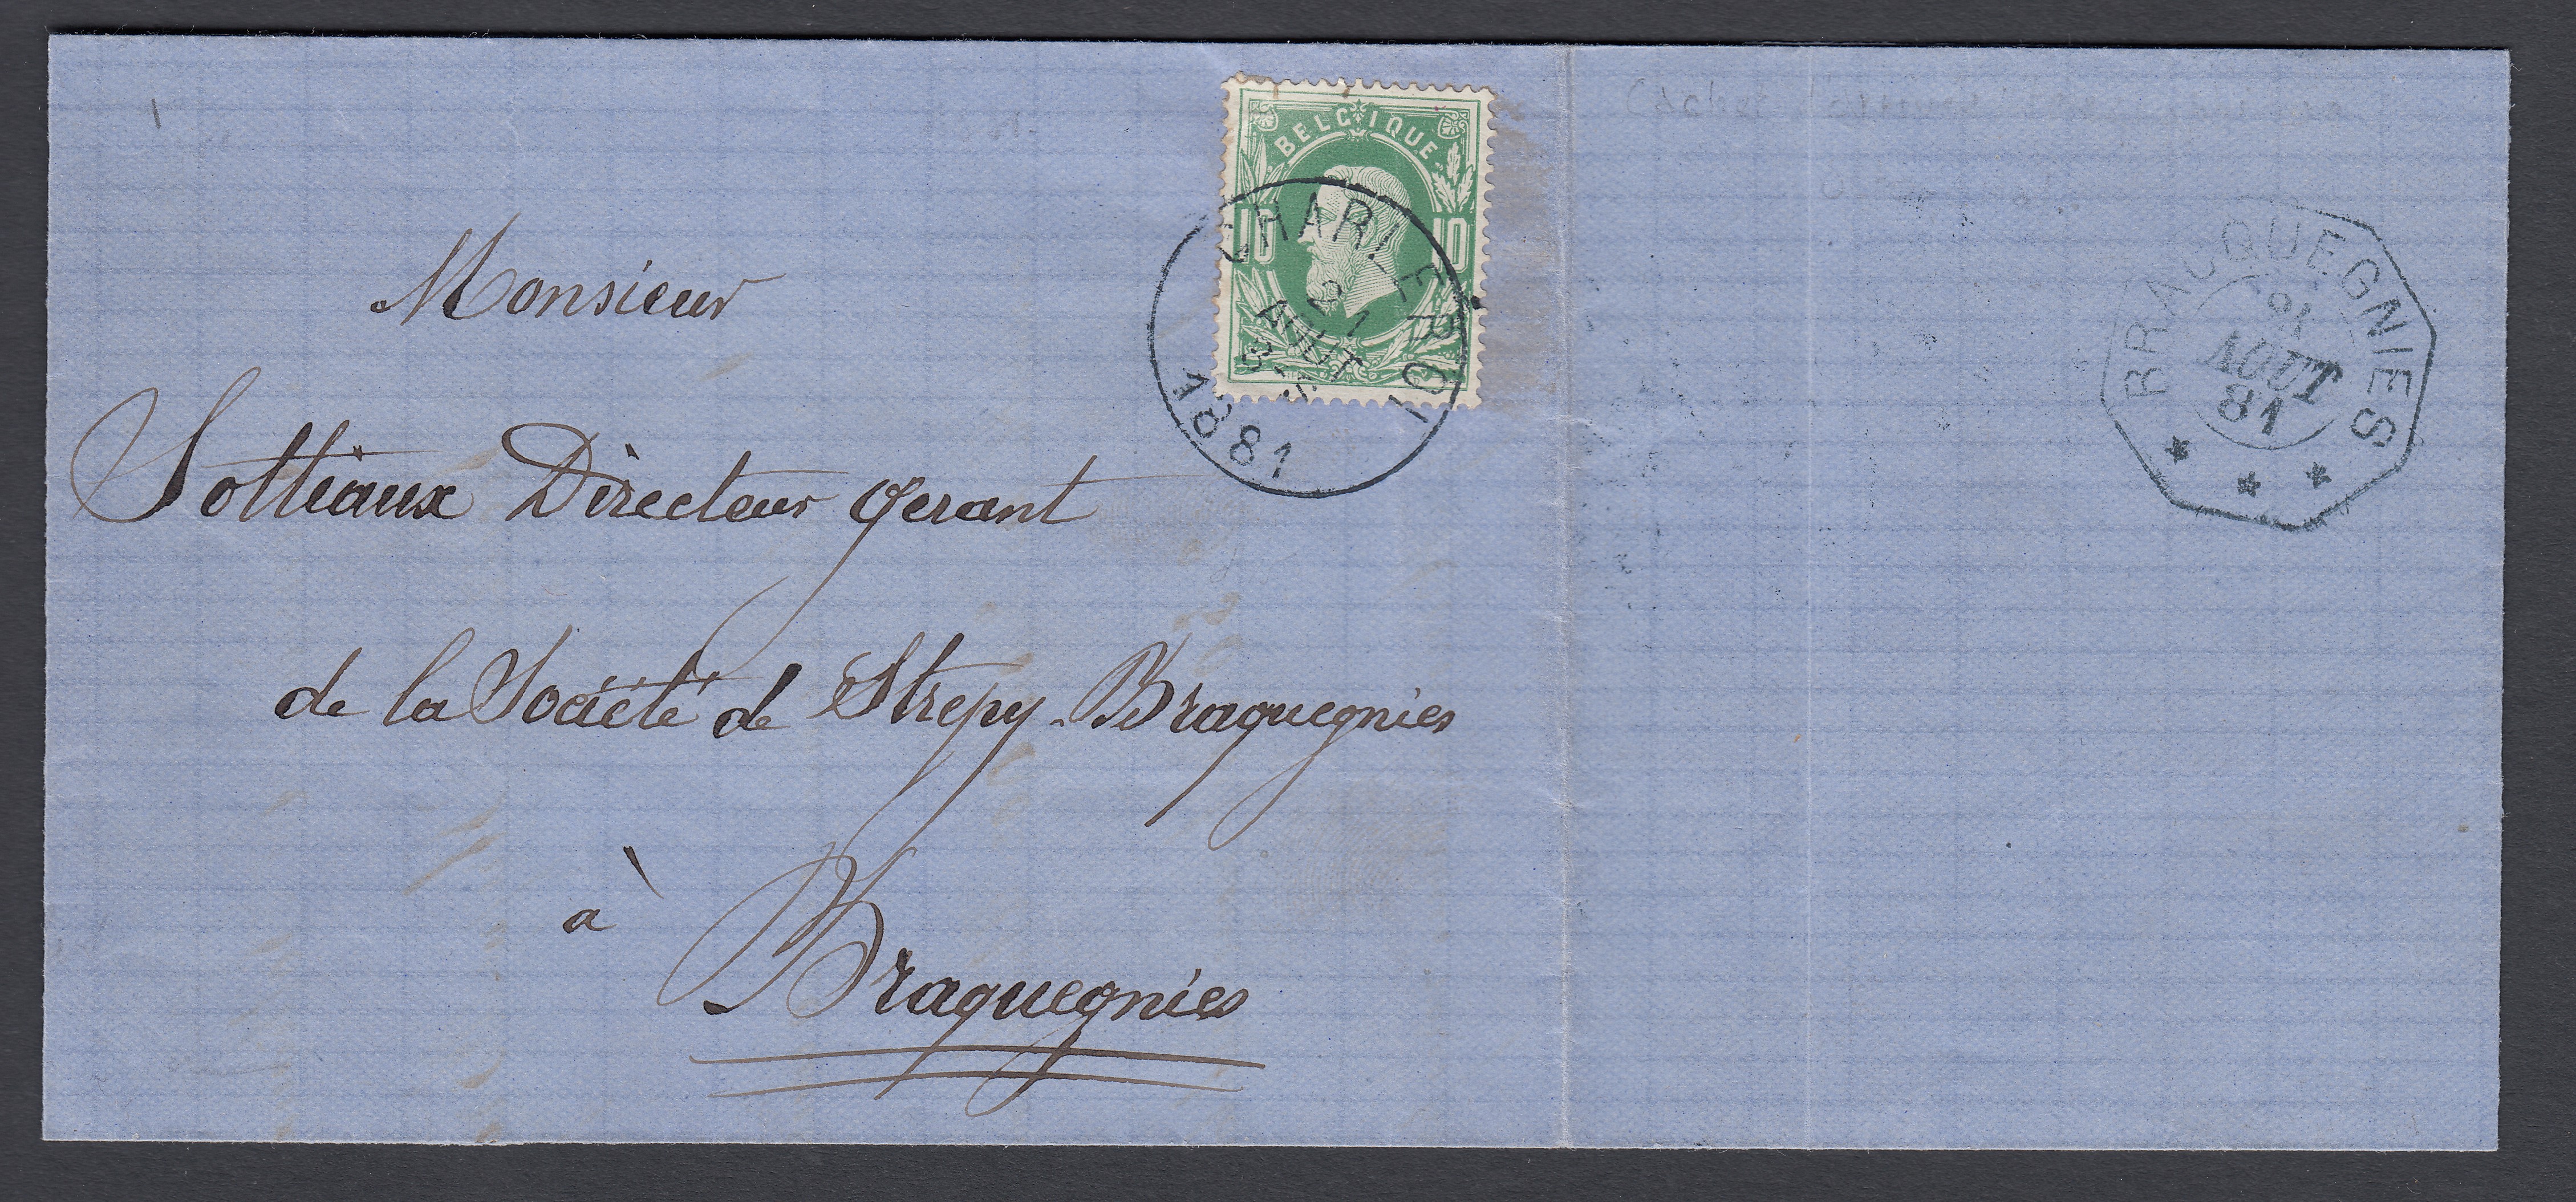 BELGIQUE
10 10
CHARLEROI
21
AOUT
1881
BRACQUEGNIES
21
AOUT
81
* * *
Monsieur
Sottiaux Directeur Gerant
de la Société de Strepy-Braquegnies
à
Braquegnies